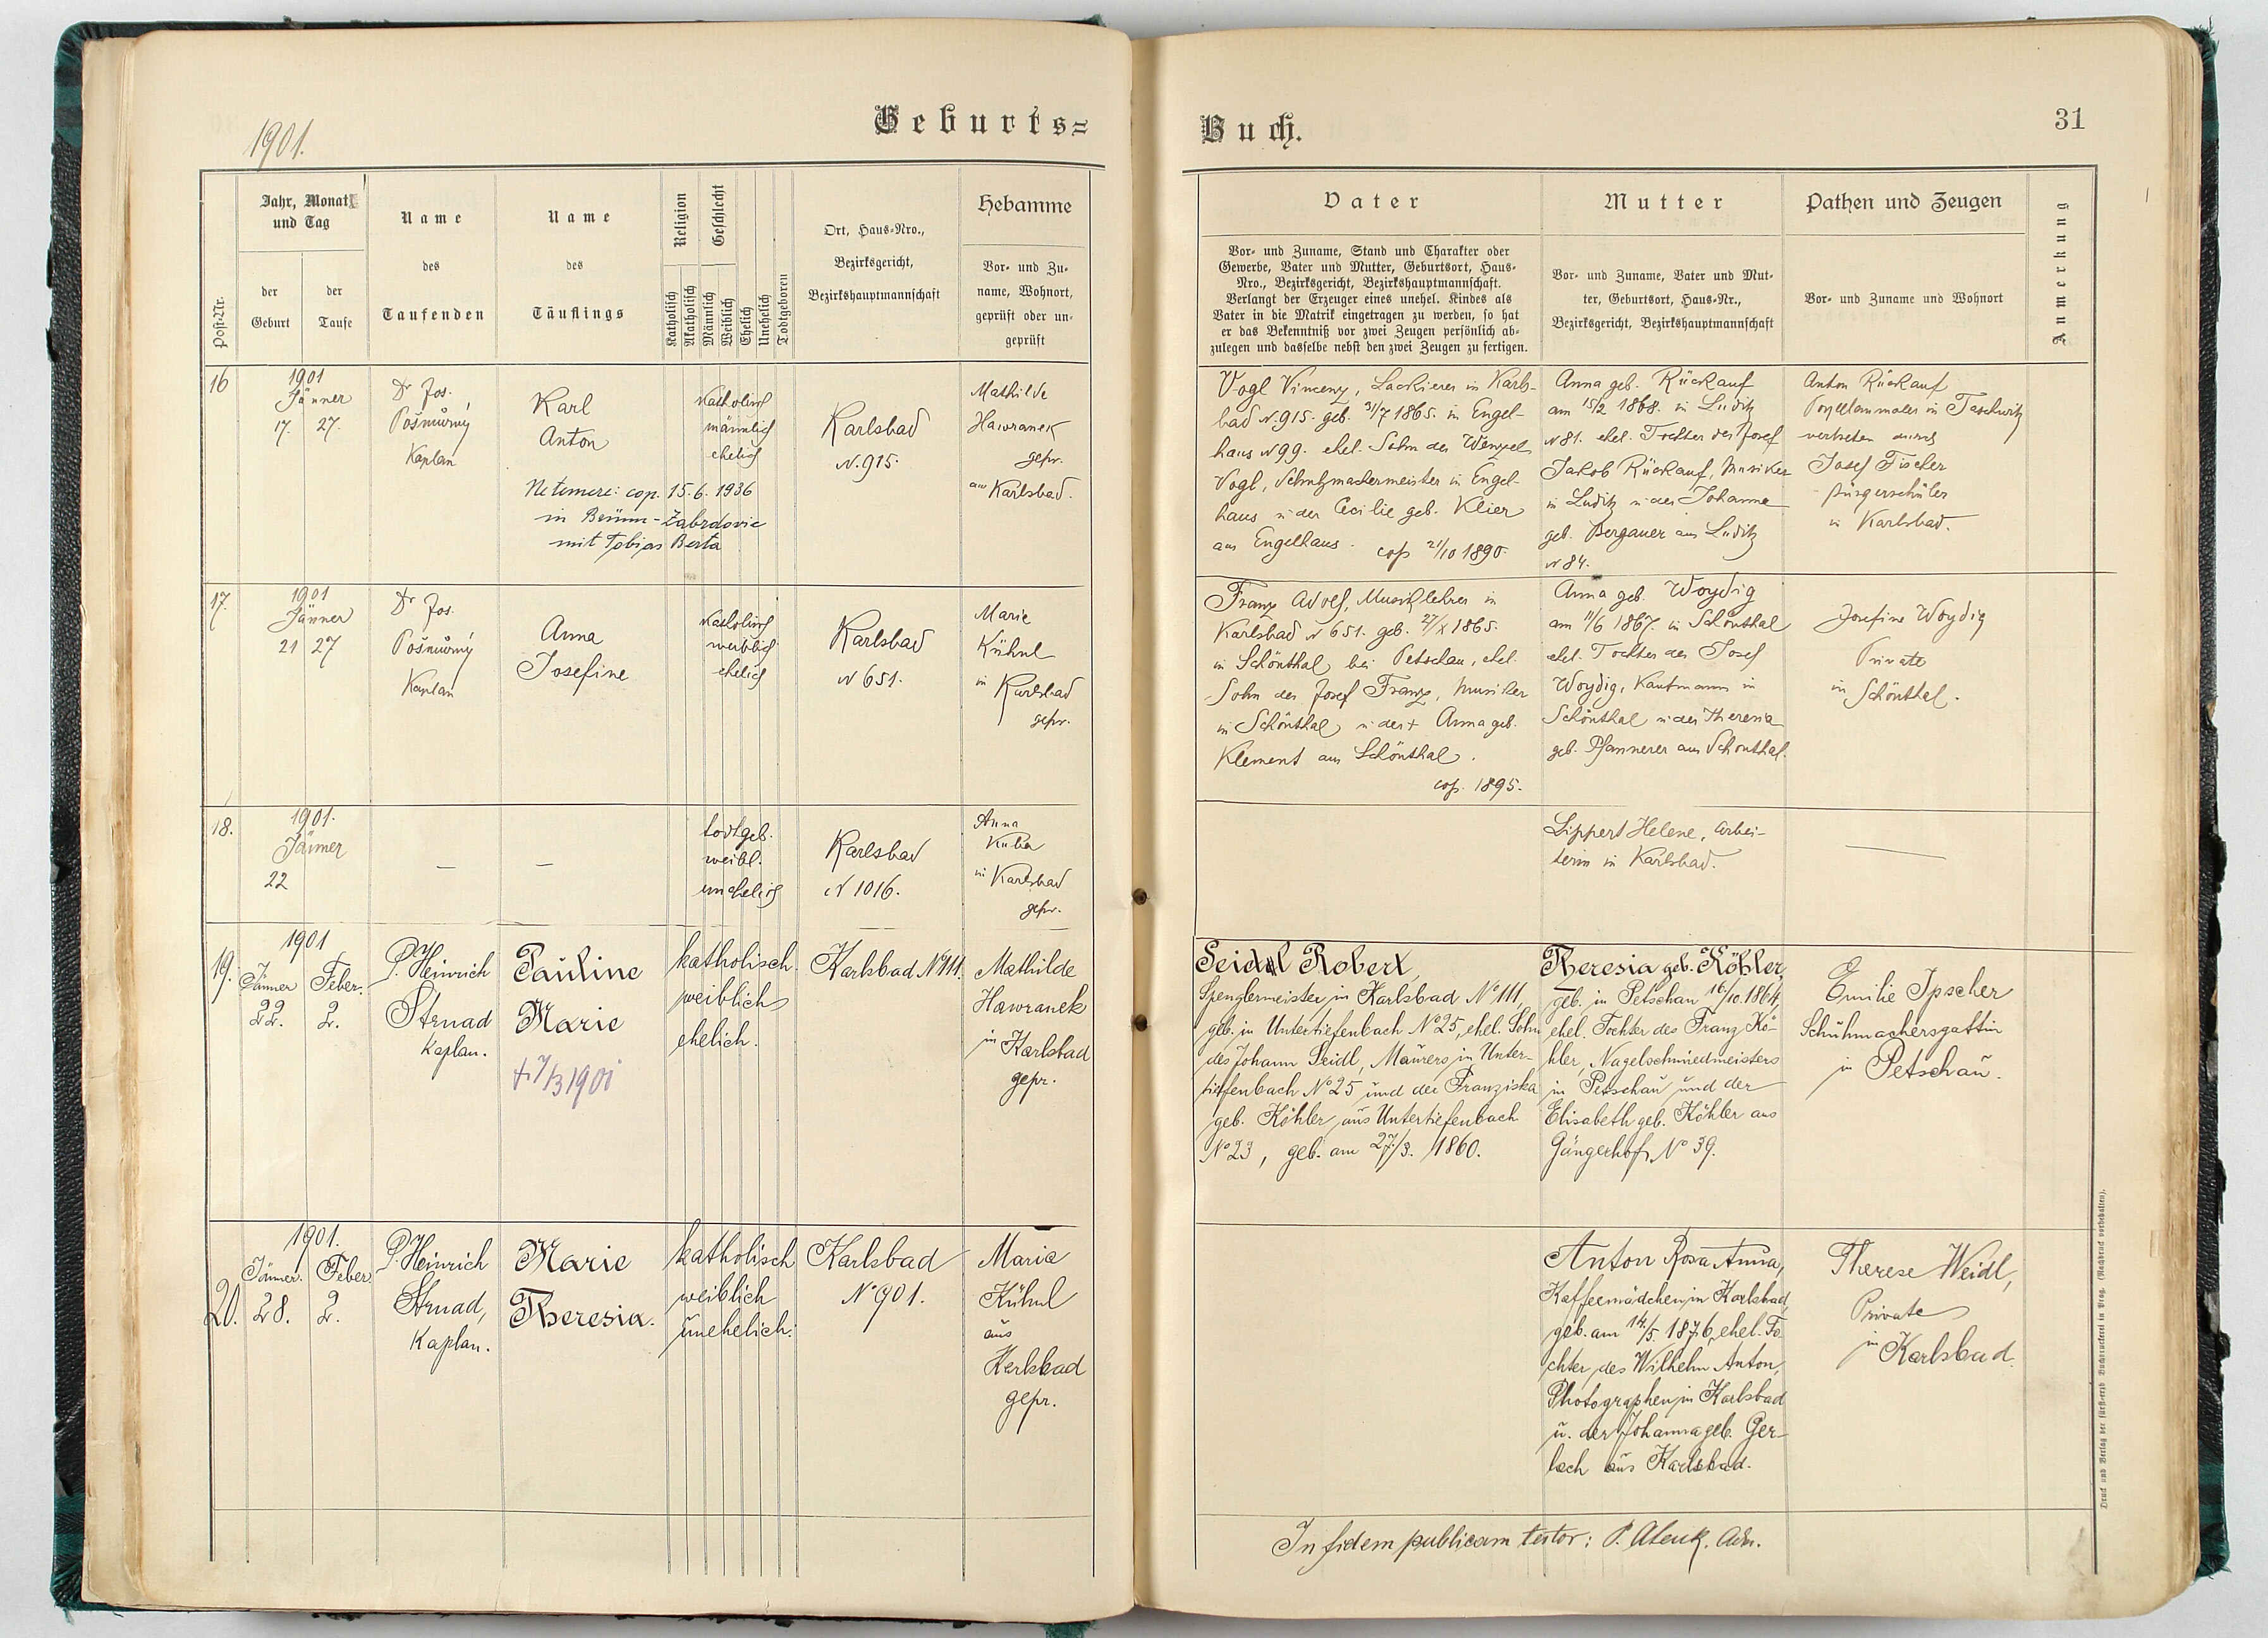 1901.
Geburts=
Buch.
31
Post-Nr.
Jahr, Monat
und Tag
der
Geburt
der
Taufe
Name
des
Taufenden
Name
des
Täuflings
Religion
Katholisch
Akatholisch
Geschlecht
Männlich
Weiblich
Ehelich
Unehelich
Todtgeboren
Ort, Haus-Nro.,
Bezirksgericht,
Bezirkshauptmannschaft
Hebamme
Vor- und Zu-
name, Wohnort,
geprüft oder un-
geprüft
Vater
Vor- und Zuname, Stand und Charakter oder
Gewerbe, Vater und Mutter, Geburtsort, Haus-
Nro., Bezirksgericht, Bezirkshauptmannschaft.
Verlangt der Erzeuger eines unehel. Kindes als
Vater in die Matrik eingetragen zu werden, so hat
er das Bekenntniß vor zwei Zeugen persönlich ab-
zulegen und dasselbe nebst den zwei Zeugen zu fertigen.
Mutter
Vor- und Zuname, Vater und Mut-
ter, Geburtsort, Haus-Nr.,
Bezirksgericht, Bezirkshauptmannschaft
Pathen und Zeugen
Vor- und Zuname und Wohnort
Anmerkung
16
1901
Jänner
17. 27.
Dr Jos.
Pošmůrný
Kaplan
Karl
Anton
katholisch
männlich
ehelich
Karlsbad
N. 915.
Mathilde
Hawranek
gepr.
aus Karlsbad.
Ne temere: cop. 15. 6. 1936
in Brünn - Zabrdovic
mit Tobias Berta
Vogl Vincenz, Lackierer in Karls-
bad N. 915. geb. 31/7 1865. in Engel-
haus N 99. ehel. Sohn des Wenzel
Vogl, Schuhmachermeister in Engel-
haus u der Cecilie geb. Klier
aus Engelhaus. cop 21/10 1890.
Anna geb. Rückauf
am 15/2 1868. in Luditz
N 81. ehel. Tochter des Josef
Jakob Rückauf, Musiker
in Luditz u der Johanna
geb. Bergauer aus Luditz
N 84.
Anton Rückauf
Porzellanmaler in Taschwitz
vertreten durch
Josef Fischer
Bürgerschüler
in Karlsbad.
17.
1901
Jänner
21 27
Dr Jos.
Pošmůrný
Kaplan
Anna
Josefine
katholisch
weiblich
ehelich
Karlsbad
N 651.
Marie
Kühnl
in Karlsbad
gepr.
Franz Adolf, Musiklehrer in
Karlsbad N 651. geb. 27/X 1865.
in Schönthal bei Petschau, ehel.
Sohn des Josef Franz, Musiker
in Schönthal u der + Anna geb.
Klement aus Schönthal.
cop. 1895.
Anna geb. Woydig
am 11/6 1867. in Schönthal
ehel. Tochter des Josef
Woydig, Kaufmann in
Schönthal u der Theresia
geb. Pfannerer aus Schönthal.
Josefine Woydig
Private
in Schönthal.
18.
1901.
Jänner
22
—
—
todtgeb.
weibl.
unehelich
Karlsbad
N 1016.
Anna
Kuba
in Karlsbad
gepr.
Lippert Helene, Arbei-
terin in Karlsbad.
19.
1901
Jänner Feber.
22. 2.
P. Heinrich
Strnad
Kaplan.
Pauline
Marie
† 7/3 1901
katholisch
weiblich
ehelich.
Karlsbad No 111.
Mathilde
Hawranek
in Karlsbad
gepr.
Seidl Robert,
Spenglermeister in Karlsbad No 111,
geb. in Untertiefenbach No 25, ehel. Sohn
des Johann Seidl, Maurers in Unter-
tiefenbach No 25 und der Franziska
geb. Köhler aus Untertiefenbach
No 23, geb. am 27./3. 1860.
Theresia geb. Köhler,
geb. in Petschau 16./10. 1864,
ehel. Tochter des Franz Kö-
hler, Nagelschmiedmeisters
in Petschau und der
Elisabeth geb. Köhler aus
Gängerhof No 39.
Emilie Ipscher
Schuhmachersgattin
in Petschau.
20.
1901.
Jänner. Feber
28. 2.
P. Heinrich
Strnad,
Kaplan.
Marie
Theresia.
katholisch
weiblich
unehelich.
Karlsbad
No 901.
Maria
Kühnl
aus
Karlsbad
gepr.
Anton Rosa Anna,
Kaffeemädchen in Karlsbad,
geb. am 14./5. 1876, ehel. To-
chter des Wilhelm Anton,
Photographen in Karlsbad
u. der Johanna geb. Ger-
lach aus Karlsbad.
Therese Weidl,
Private
in Karlsbad.
In fidem publicam testor: P.
Druck und Verlag der fürst-erzb. Buchdruckerei in Prag. (Nachdruck vorbehalten).